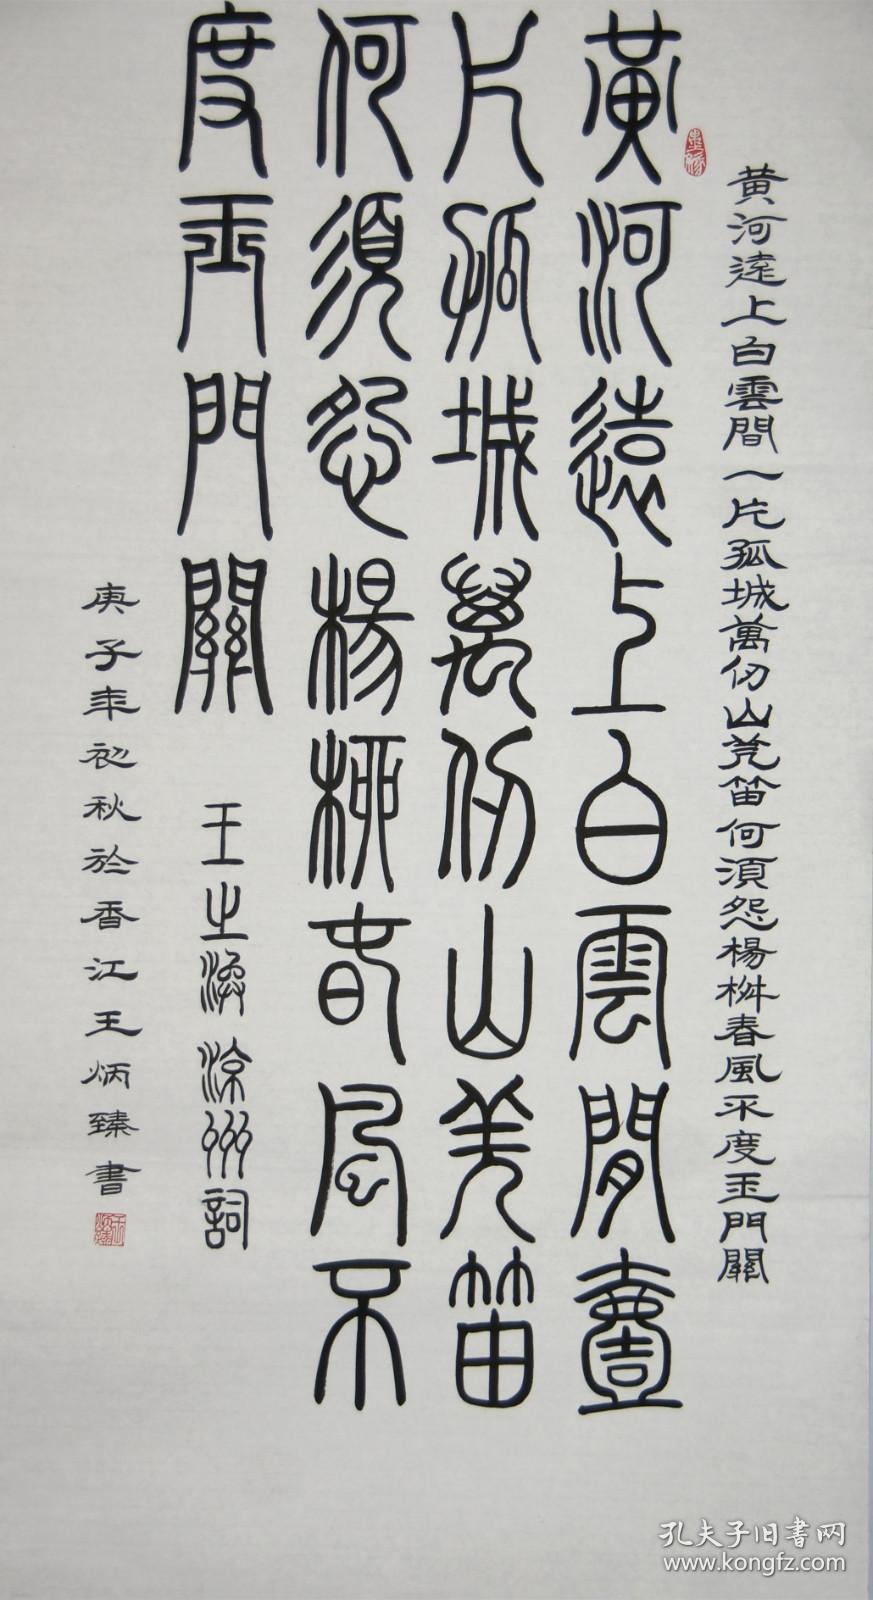 黃河遠上白雲間一片孤城萬仞山羌笛何須怨楊桺春風不度玉門關
黃河遠上白雲閒壹
片孤城萬仞山羌笛
何須怨楊桺春風不
度玉門關
王之渙涼州詞
庚子年初秋於香江王炳臻書
孔夫子旧书网
www.kongfz.com